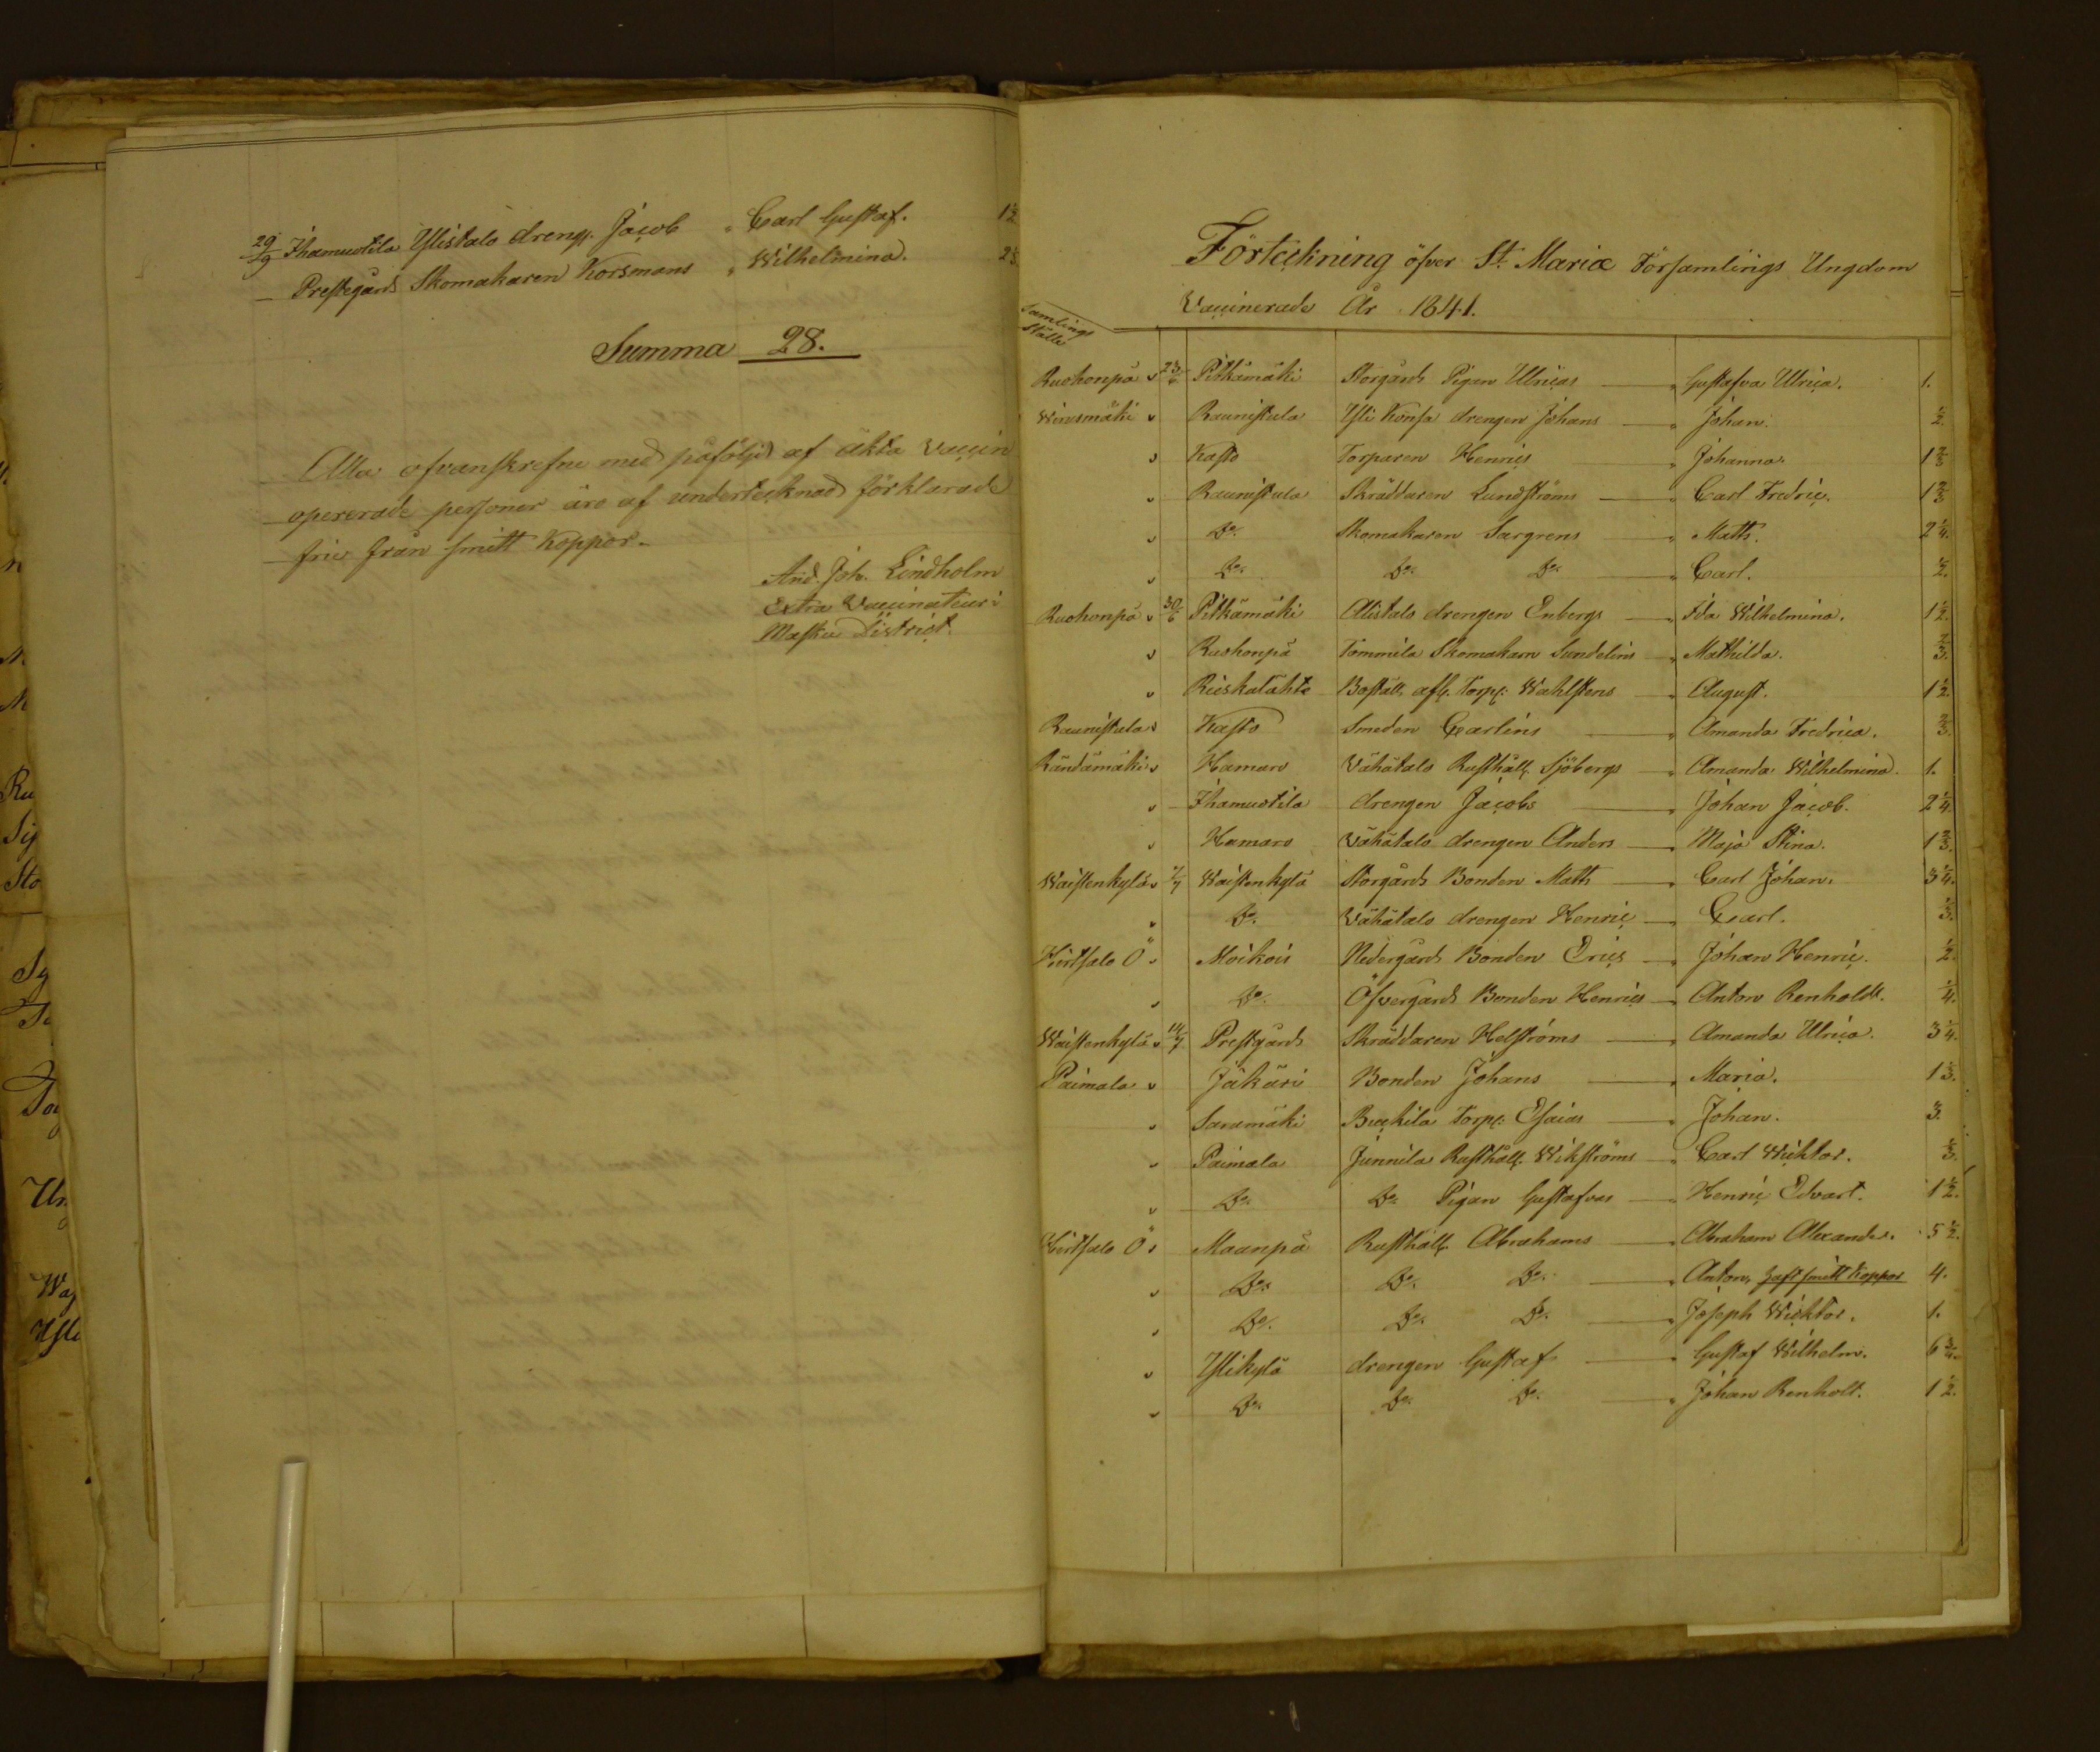 29/9 Ihamuotila Ylistalo dreng. Jacob „ Carl Gustaf. 1 1/2
— Prestegårds Skomakaren Korsmans „ Wilhelmina. 2
Summa 28.
Alla ofvanskrefne med påföljd af äkta Vaccin
opererade personer äro af undertecknad förklarade
frie från smitt koppor.
And. Joh. Lindholm
Extra Vaccinateur i
Masku District.
Förteckning öfver St. Mariæ Församlings Ungdom
Vaccinerade År 1841.
Samlings
ställe
Ruohonpä „ 23/6 Pitkämäki Storgårds Pigan Ulricas — „ Gustafva Ulrica. 1.
Wirusmäki „ Raunistula Yli Konsa drengen Johans — „ Johan. 1/2.
„ Kasto Torparen Henrics — „ Johanna. 1 2/3
„ Raunistula Skräddaren Lundströms — „ Carl Fredric. 1 2/3
„ Do. Skomakaren Sargrens — „ Math. 2 1/4.
„ Do. Do. Do. — „ Carl. 1/2.
Ruohonpä „ 30/6 Pitkämäki Alistalo drengen Enbergs — „ Ida Wilhelmina. 1 1/2.
„ Ruohonpä Tommila Skomakarn Sundelins — „ Mathilda. 2/3.
„ Rieskalähte Boställ. afl. Torp: Wahlstens — „ August. 1 1/2.
Raunistula „ Kasto Smeden Carlins — „ Amanda Fredrica. 2/3.
Rändämäki „ Hamaro Vähätalo Rusthåll. Sjöbergs — „ Amanda Wilhelmina. 1.
„ Ihamuotila drengen Jacobs — „ Johan Jacob. 2 1/4.
„ Hamaro Vähätalo drengen Anders — „ Maja Stina. 1 2/3.
Waistenkylä „ 7/7 Waistenkylä Storgårds Bonden Math — „ Carl Johan. 3 1/4.
„ Do. Vähätalo drengen Henric — „ Carl. 1/3.
Hirtsalo Ö „ Moikois Nedergårds Bonden Erics — „ Johan Henric. 1/2.
„ Do. Öfvergårds Bonden Henrics — „ Anton Renholdt. 1/4.
Waistenkylä „ 14/7 Prestgårds Skräddaren Helströms — „ Amanda Ulrica. 3 1/4.
Paimala „ Jäkäri Bonden Johans — „ Maria. 1 1/3.
„ Saramäki Torp: Esaias — „ Johan. 3.
„ Paimala Junnila Rusthåll. Wikströms — „ Carl Wicktor. 1/3.
„ Do. Do. Pigan Gustafvas — „ Henric Edvart. 1 1/2.
Hirtsalo Ö „ Maanpä Rusthåll. Abrahams — „ Abraham Alexander. 5 1/2.
„ Do. Do. Do. — „ Anton, haft smitt koppor 4.
„ Do. Do. Do. — „ Joseph Wicktor. 1.
„ Ylikylä drengen Gustaf — „ Gustaf Wilhelm. 6 3/4.
„ Do. Do. Do. — „ Johan Renholt. 1 1/2.